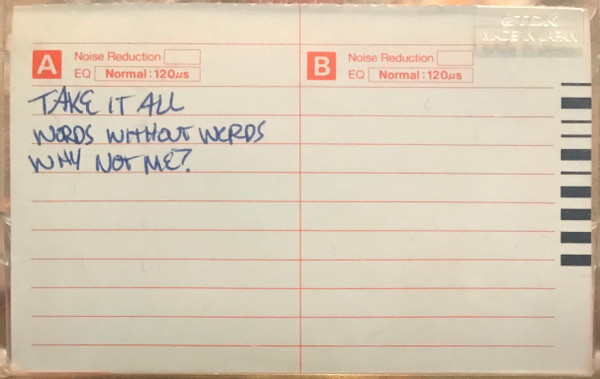 TDK
MADE IN JAPAN
A Noise Reduction
EQ Normal: 120μs
B Noise Reduction
EQ Normal: 120μs
TAKE IT ALL
WORDS WITHOUT WORDS
WHY NOT ME?